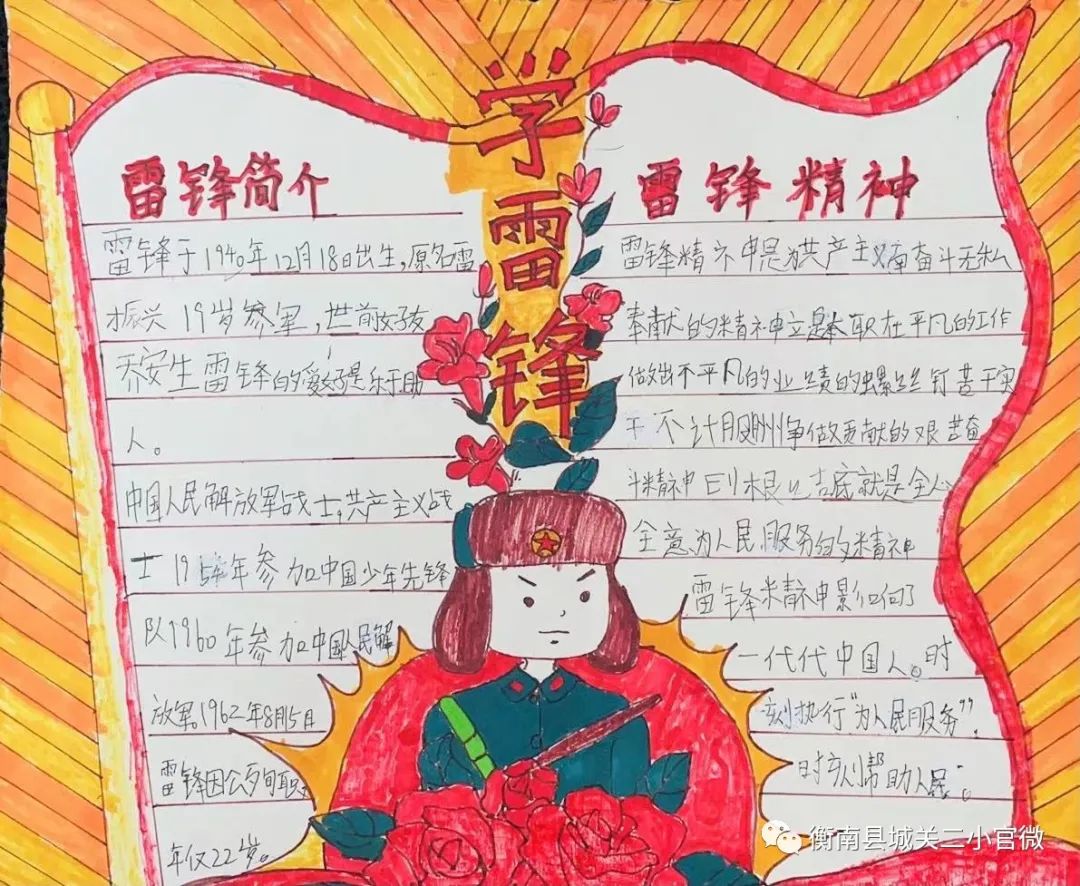 学雷锋
雷锋简介
雷锋于1940年12月18日出生,原名雷
振兴 19岁参军,世前女好友
乔安生 雷锋的爱好是乐于助
人。
中国人民解放军战士,共产主义战
士 1954年参加中国少年先锋
队1960年参加中国人民解
放军1962年8月5日
雷锋因公殉职,
年仅22岁。
雷锋精神
雷锋精神是为共产主义奋斗无私
奉献的精神立足本职在平凡的工作
做出不平凡的业绩的螺丝钉苦干实
干不计 争做贡献的艰苦奋
斗精神归根 底就是全心
全意为人民服务的精神
雷锋精神影响了
一代代中国人。时
刻执行“为人民服务”,
时刻帮助人民。
衡南县城关二小官微